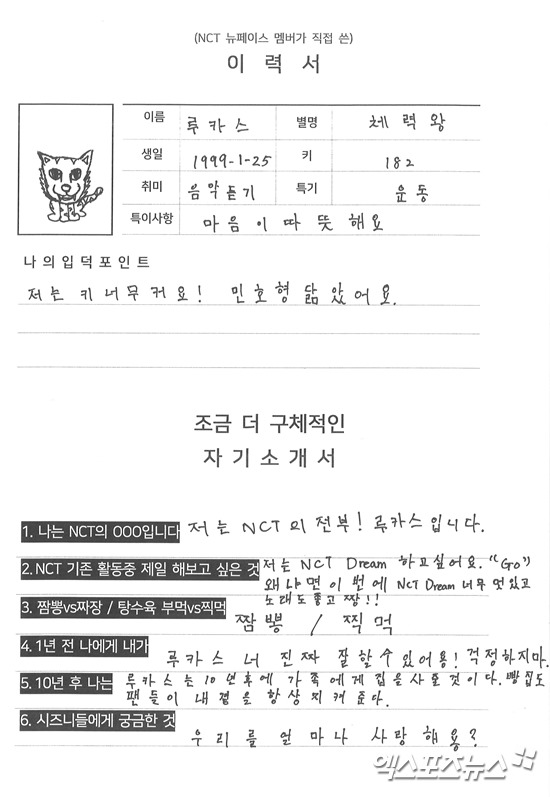 (NCT 뉴페이스 멤버가 직접 쓴)
이 력 서
이름 루카스 별명 체력왕
생일 1999-1-25 키 182
취미 음악듣기 특기 운동
특이사항 마음이따뜻해요
나의입덕포인트
저는 키너무커요! 민호형닮았어요.
조금 더 구체적인
자기소개서
1. 나는 NCT의 OOO입니다 저는 NCT의 전부! 루카스입니다.
2. NCT 기존 활동중 제일 해보고 싶은 것 저는 NCT Dream 하고싶어요. "Go"
왜냐면 이번에 NCT Dream 너무 멋있고
노래도좋고 짱!!
3. 짬뽕vs짜장 / 탕수육 부먹vs찍먹 짬뽕 / 찍먹
4. 1년 전 나에게 내가 루카스 너 진짜 잘할수있어용! 걱정하지마.
5. 10년 후 나는 루카스는 10년후에 가족에게집을사줄것이다. 빵집도
팬들이 내곁을항상지켜준다.
6. 시즈니들에게 궁금한 것 우리를 얼마나 사랑해용?
엑스포츠뉴스